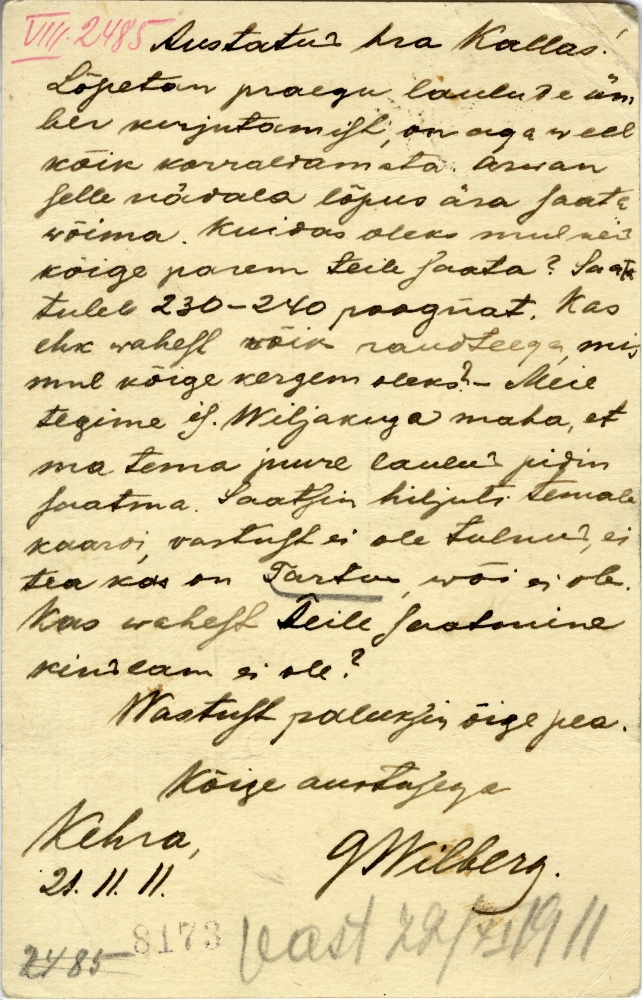 VIII. 2485
Austatud hra Kallas!
Lõpetan praegu laulude üm
ber kirjutamist, on aga weel
kõik korraldamata. Arwan
selle nädala lõpus ära saata
wõima. Kuidas oleks mul neid
kõige parem Teile saata? Saata
tuleb 230-240 poognat. Kas
ehk wahest kõik raudteega, mis
mul kõige kergem oleks? - Meie
tegime is. Wiljakuga maha, et
ma tema juure laulud pidin
saatma. Saatsin hiljuti temale
kaardi, vastust ei ole tulnud, ei
tea kas on Tartus, wõi ei ole.
Kas wahest Teile saatmine
kindlam ei ole?
Wastust paluksin õige pea.
Kõige austusega
Kehra,
GWilberg.
21. 11. 11.
8173
vast 28/XI 1911
2485